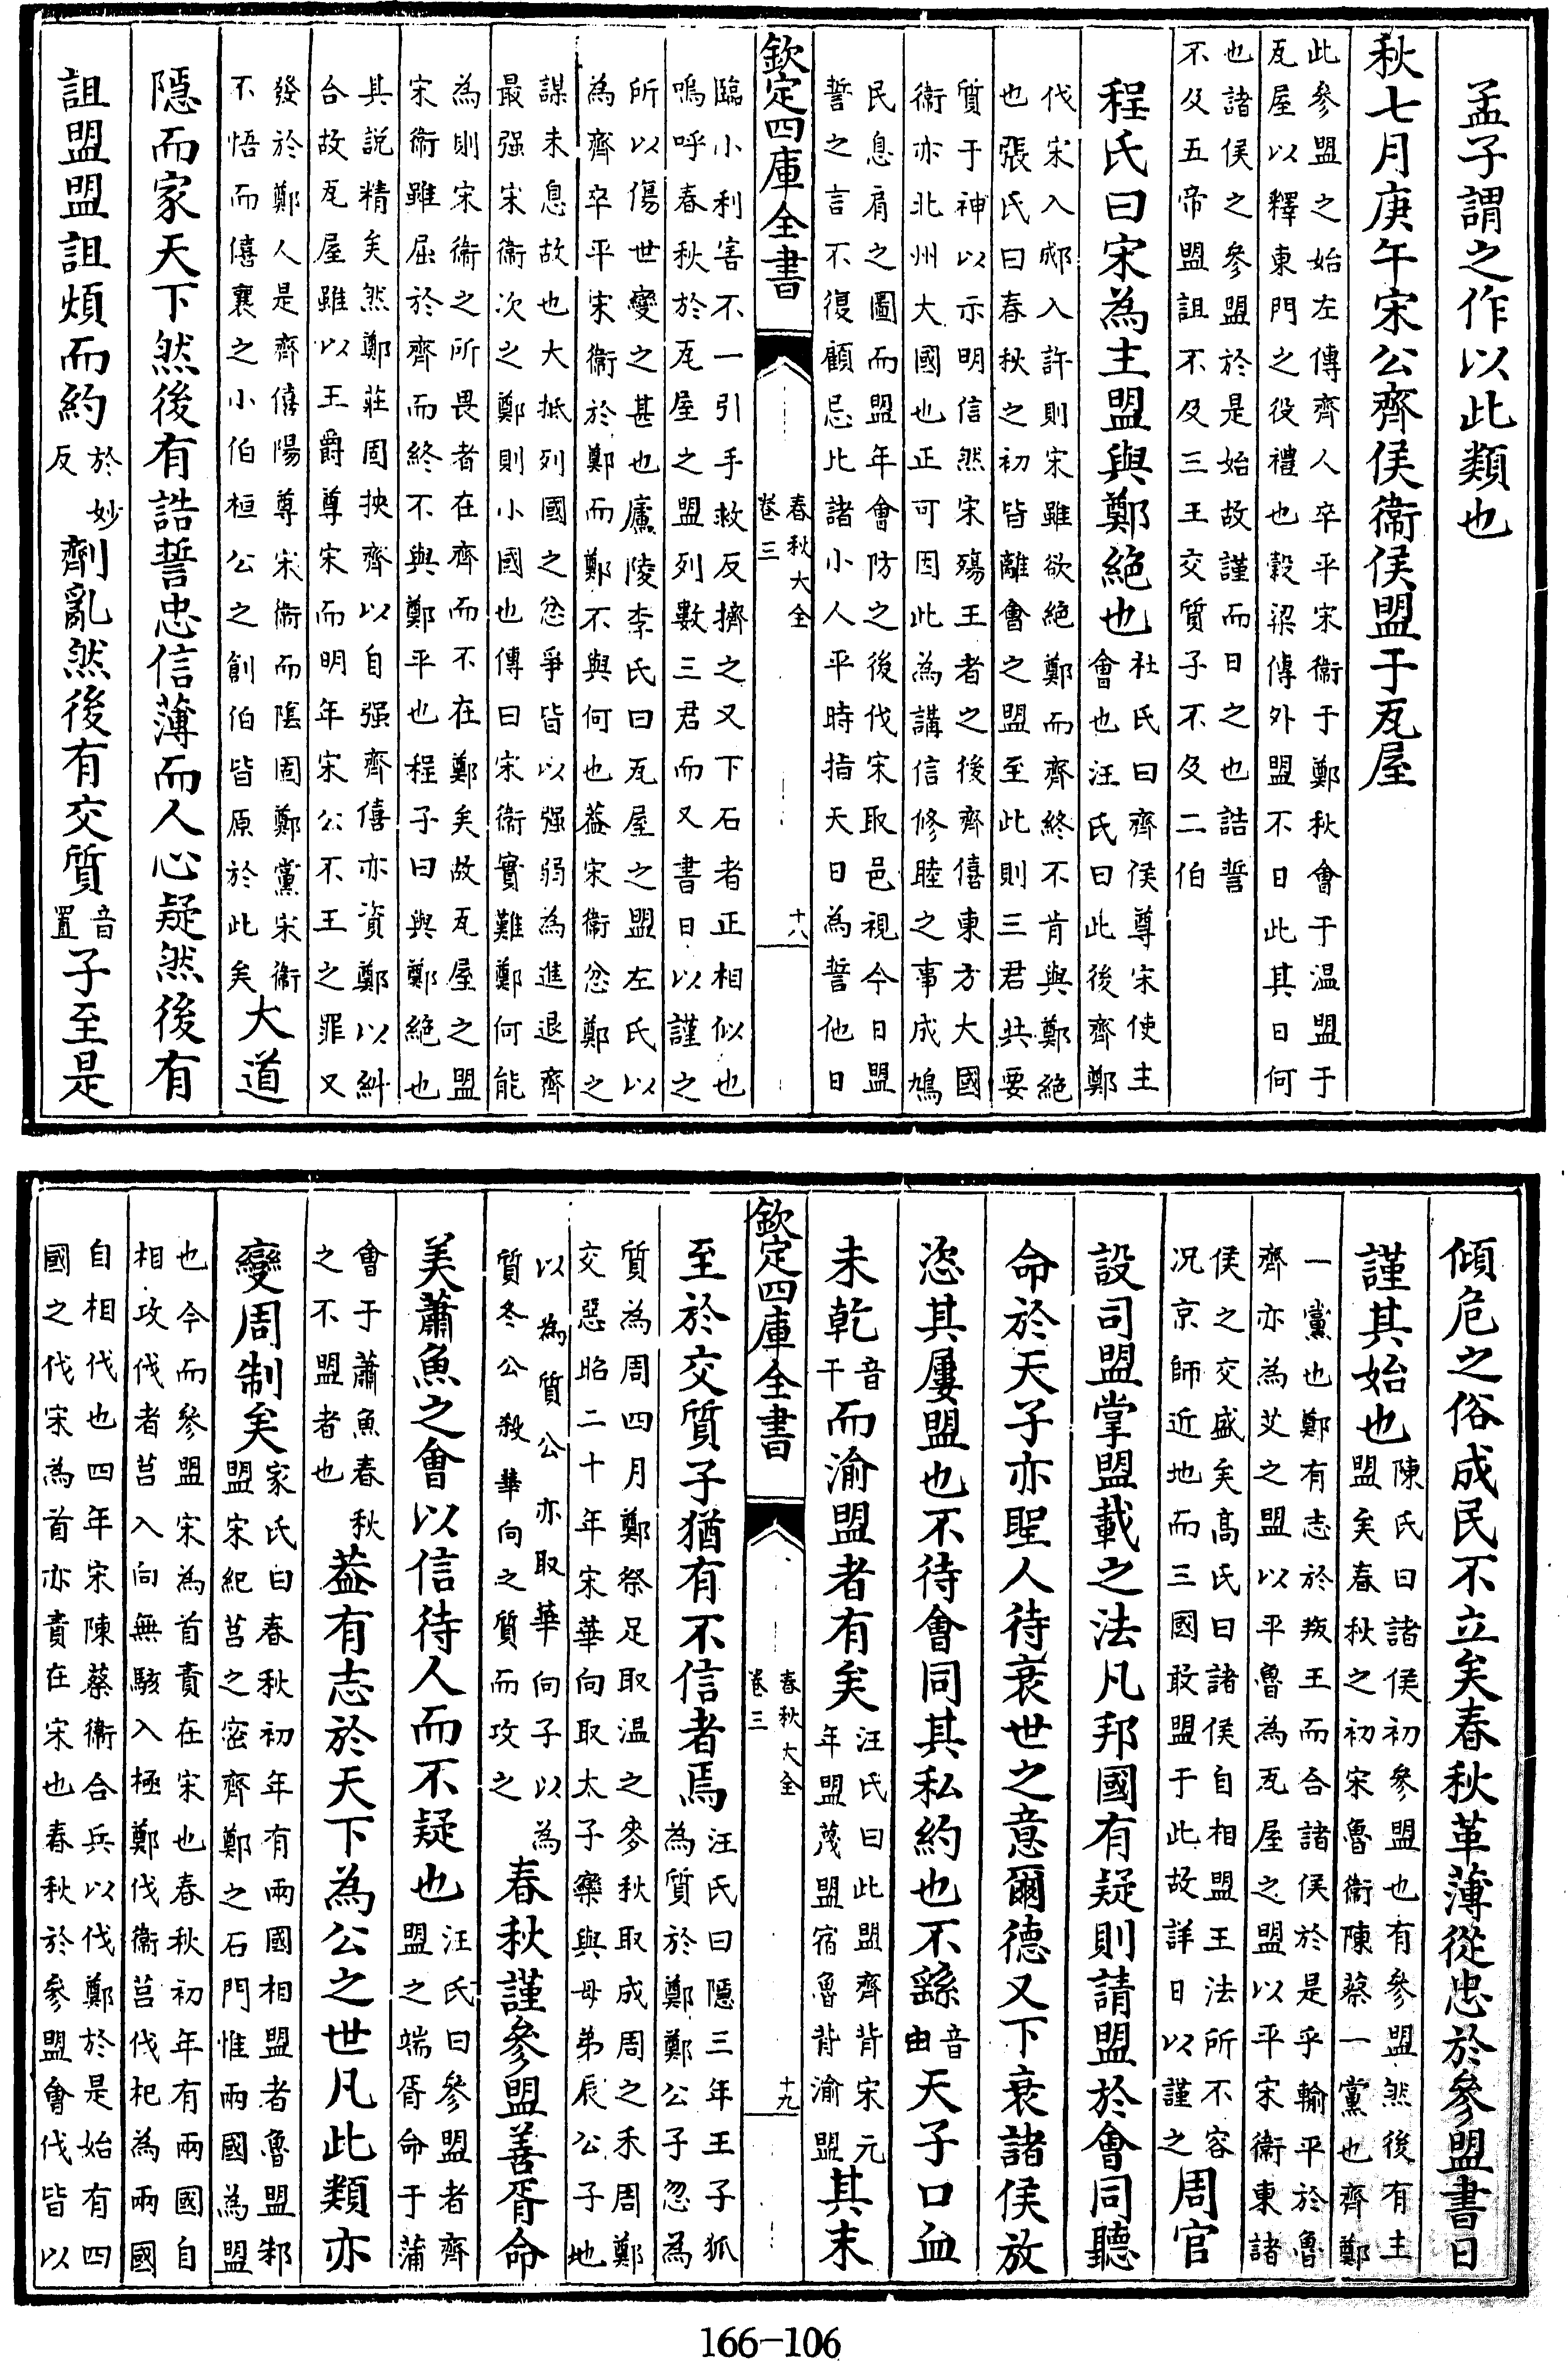 孟子謂之作以此類也
秋七月庚午宋公齊侯衞侯盟于瓦屋
此參盟之始左傳齊人卒平宋衞于鄭秋會于温盟于
瓦屋以釋東門之役禮也穀梁傳外盟不日此其日何
也諸侯之參盟於是始故謹而日之也誥誓
不及五帝盟詛不及三王交質子不及二伯
程氏曰宋為主盟與鄭絶也杜氏曰齊侯尊宋使主
會也汪氏曰此後齊鄭
伐宋入郕入許則宋雖欲絶鄭而齊終不肯與鄭絶
也張氏曰春秋之初皆離會之盟至此則三君共要
質于神以示明信然宋殤王者之後齊僖東方大國
衞亦北州大國也正可因此為講信修睦之事成鳩
民息肩之圖而盟年會防之後伐宋取邑視今日盟
誓之言不復顧忌比諸小人平時指天日為誓他日
欽定四庫全書
春秋大全
卷三
十八
臨小利害不一引手救反擠之又下石者正相似也
嗚呼春秋於瓦屋之盟列數三君而又書日以謹之
所以傷世變之甚也廬陵李氏曰瓦屋之盟左氏以
為齊卒平宋衞於鄭而鄭不與何也葢宋衞忿鄭之
謀未息故也大抵列國之忿爭皆以强弱為進退齊
最强宋衞次之鄭則小國也傳曰宋衞實難鄭何能
為則宋衞之所畏者在齊而不在鄭矣故瓦屋之盟
宋衞雖屈於齊而終不與鄭平也程子曰與鄭絶也
其說精矣然鄭莊固挾齊以自强齊僖亦資鄭以糾
合故瓦屋雖以王爵尊宋而明年宋公不王之罪又
發於鄭人是齊僖陽尊宋衞而陰固鄭黨宋衞
不悟而僖襄之小伯桓公之創伯皆原於此矣大道
隱而家天下然後有誥誓忠信薄而人心疑然後有
詛盟盟詛煩而約於妙反劑亂然後有交質音置子至是
傾危之俗成民不立矣春秋革薄從忠於參盟書日
謹其始也陳氏曰諸侯初參盟也有參盟然後有主
盟矣春秋之初宋魯衞陳蔡一黨也齊鄭
一黨也鄭有志於叛王而合諸侯於是乎輸平於魯
齊亦為艾之盟以平魯為瓦屋之盟以平宋衞東諸
侯之交盛矣高氏曰諸侯自相盟王法所不容
况京師近地而三國敢盟于此故詳日以謹之周官
設司盟掌盟載之法凡邦國有疑則請盟於會同聽
命於天子亦聖人待衰世之意爾德又下衰諸侯放
恣其屢盟也不待會同其私約也不繇音由天子口血
未乾音干而渝盟者有矣汪氏曰此盟齊背宋元
年盟蔑盟宿魯背渝盟其末
欽定四庫全書
春秋大全
卷三
十九
至於交質子猶有不信者焉汪氏曰隱三年王子狐
為質於鄭鄭公子忽為
質為周四月鄭祭足取温之麥秋取成周之禾周鄭
交惡昭二十年宋華向取太子欒與母弟辰公子地
以為質公亦取華向子以為
質冬公殺華向之質而攻之春秋謹參盟善胥命
美蕭魚之會以信待人而不疑也汪氏曰參盟者齊
盟之端胥命于蒲
會于蕭魚春秋
之不盟者也葢有志於天下為公之世凡此類亦
變周制矣家氏曰春秋初年有兩國相盟者魯盟邾
盟宋紀莒之密齊鄭之石門惟兩國為盟
也今而參盟宋為首責在宋也春秋初年有兩國自
相攻伐者莒入向無駭入極鄭伐衞莒伐杞為兩國
自相伐也四年宋陳蔡衞合兵以伐鄭於是始有四
國之伐宋為首亦責在宋也春秋於參盟會伐皆以
166-106